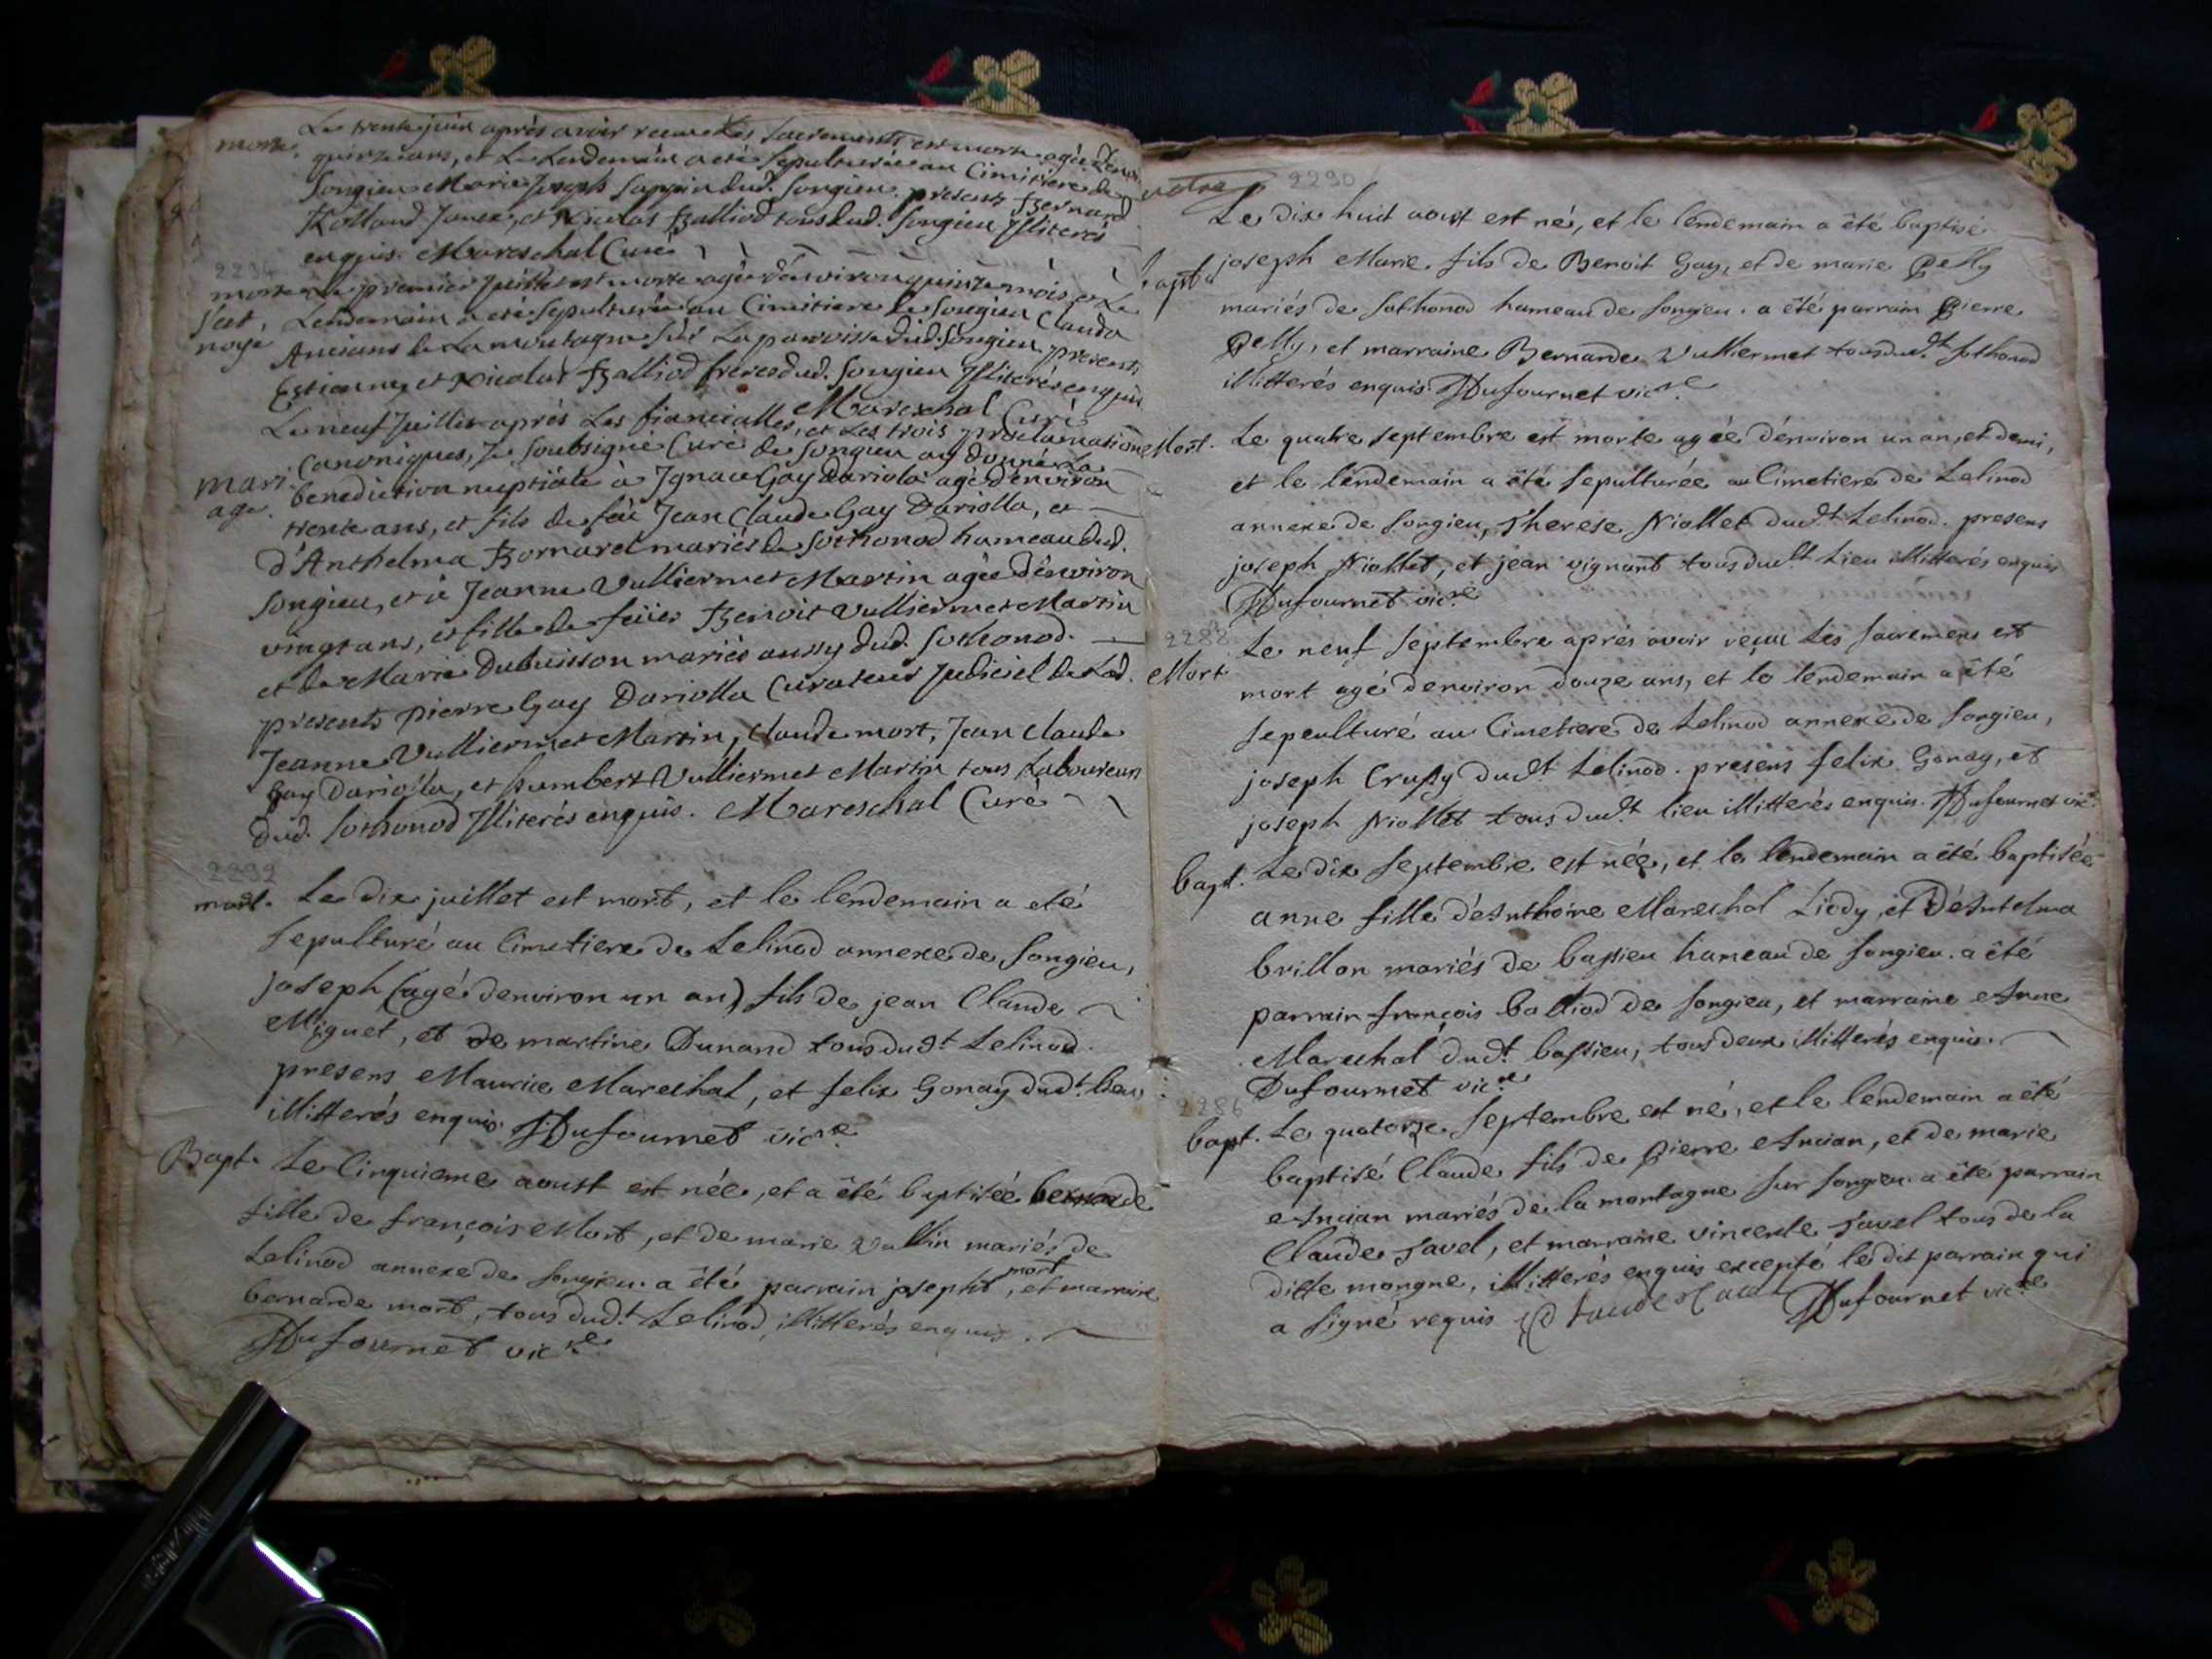 morte. Le trente juin après avoir receue Les Sacrements est morte agée d'env.
quinze ans, et Le Lendemain a eté Sepulturée au Cimitiere de
Songieu Marie Joseph Sappin dud. Songieu. presents Bernard
Rolland Junex, et Nicolas Balliod tous dud. Songieu Illiterés
enquis. Mareschal Curé
2294
morte Le premier Juillet est morte agée d'environ quinze mois et Le
Lendemain a eté Sepulturée au Cimitiere de Songieu Clauda
Anciand de La montagne Sur La paroisse dud. Songieu, presents
Estienne, et Nicolas Balliod freres dud. Songieu Illiterés enquis
Mareschal Curé
Le neuf Juillet après Les fiancialles, et Les trois proclamations
Canoniques, Je Soubsigné Curé de Songieu ay donné La
mari
age. benediction nuptiale à Ignace Gay Dariola agé d'environ
trente ans, et fils de feu Jean Claude Gay Dariolla, et
d'Anthelma Bornarel mariés de Sothonod hameau dud.
Songieu, et à Jeanne Vulliermet Martin agée d'environ
vingt ans, et fille de feüs Benoit Vulliermet Martin
et de Marie Dubuisson mariés aussy dud. Sothonod.
presents pierre Gay Dariolla Curateur Judiciel de Lad.
Jeanne Vulliermet Martin, Claude mort, Jean Claude
Gay Dariolla, et humbert Vulliermet Martin tous Laboureurs
dud. Sothonod Illiterés enquis. Mareschal Curé
2292
mort. Le dix juillet est mort, et le lendemain a eté
Sepulturé au Cimetiere de Lelinod annexe de Songieu,
joseph (agé denviron un an) fils de jean Claude
Miguet, et de martine Dunand tous dudt Lelinod.
presens Maurice Mareschal, et felix Gonay dudt. lieu
illitterés enquis. Dufournet vicre
Bapt. Le Cinquieme aoust est née, et a êté baptisée bernarde
fille de françois Mort, et de marie Vallin mariés de
Lelinod annexe de Songieu. a êté parrain joseph mort, et marraine
bernarde mort, tous dudt. Lelinod, illitterés enquis.
Dufournet vicre
2290
Le dix huit aoust est né, et le lendemain a êté baptisé
bapt. joseph Marie fils de Benoit Gay, et de marie Pelly
mariés de Sothonod hameau de Songieu. a êté parrain Pierre
Pelly, et marraine Bernarde Vulliermet tous dudt Sothonod
illitterés enquis. Dufournet vicre
Mort. Le quatre septembre est morte agée d'environ un an, et demi,
et le lendemain a êté sepulturée au Cimetiere de Lelinod
annexe de Songieu, Therese Niollet dudt Lelinod. presens
joseph Niollet, et jean vignant tous dudt Lieu illitterés enquis
Dufournet vicre
2288
Mort Le neuf Septembre aprés avoir reçeu Les Sacremens est
mort agé denviron douze ans, et le lendemain a êté
sepeulturé au Cimetiere de Lelinod annexe de Songieu,
joseph Crussy dudt Lelinod. presens felix Gonay, et
joseph Niollet tous dudt lieu illitterés enquis. Dufournet vicre
bapt. Le dix Septembre est née, et le lendemain a êté baptisée
anne fille d'Anthoine Mareschal Liody, et D'Antelma
brillon mariés de bassieu hameau de Songieu. a êté
parrain françois balliod de Songieu, et marraine Anne
Mareschal dudt. bassieu, tous deux illitterés enquis.
Dufournet vicre
2286
bapt. Le quatorze Septembre est né, et le lendemain a êté
baptisé Claude fils de Pierre Ancian, et de marie
Ancian mariés de la montagne sur Songieu. a êté parrain
Claude Savel, et marraine vincente Savel tous de la
ditte mongne, illitterés enquis excepté le dit parrain qui
a signé requis Dufournet vicre